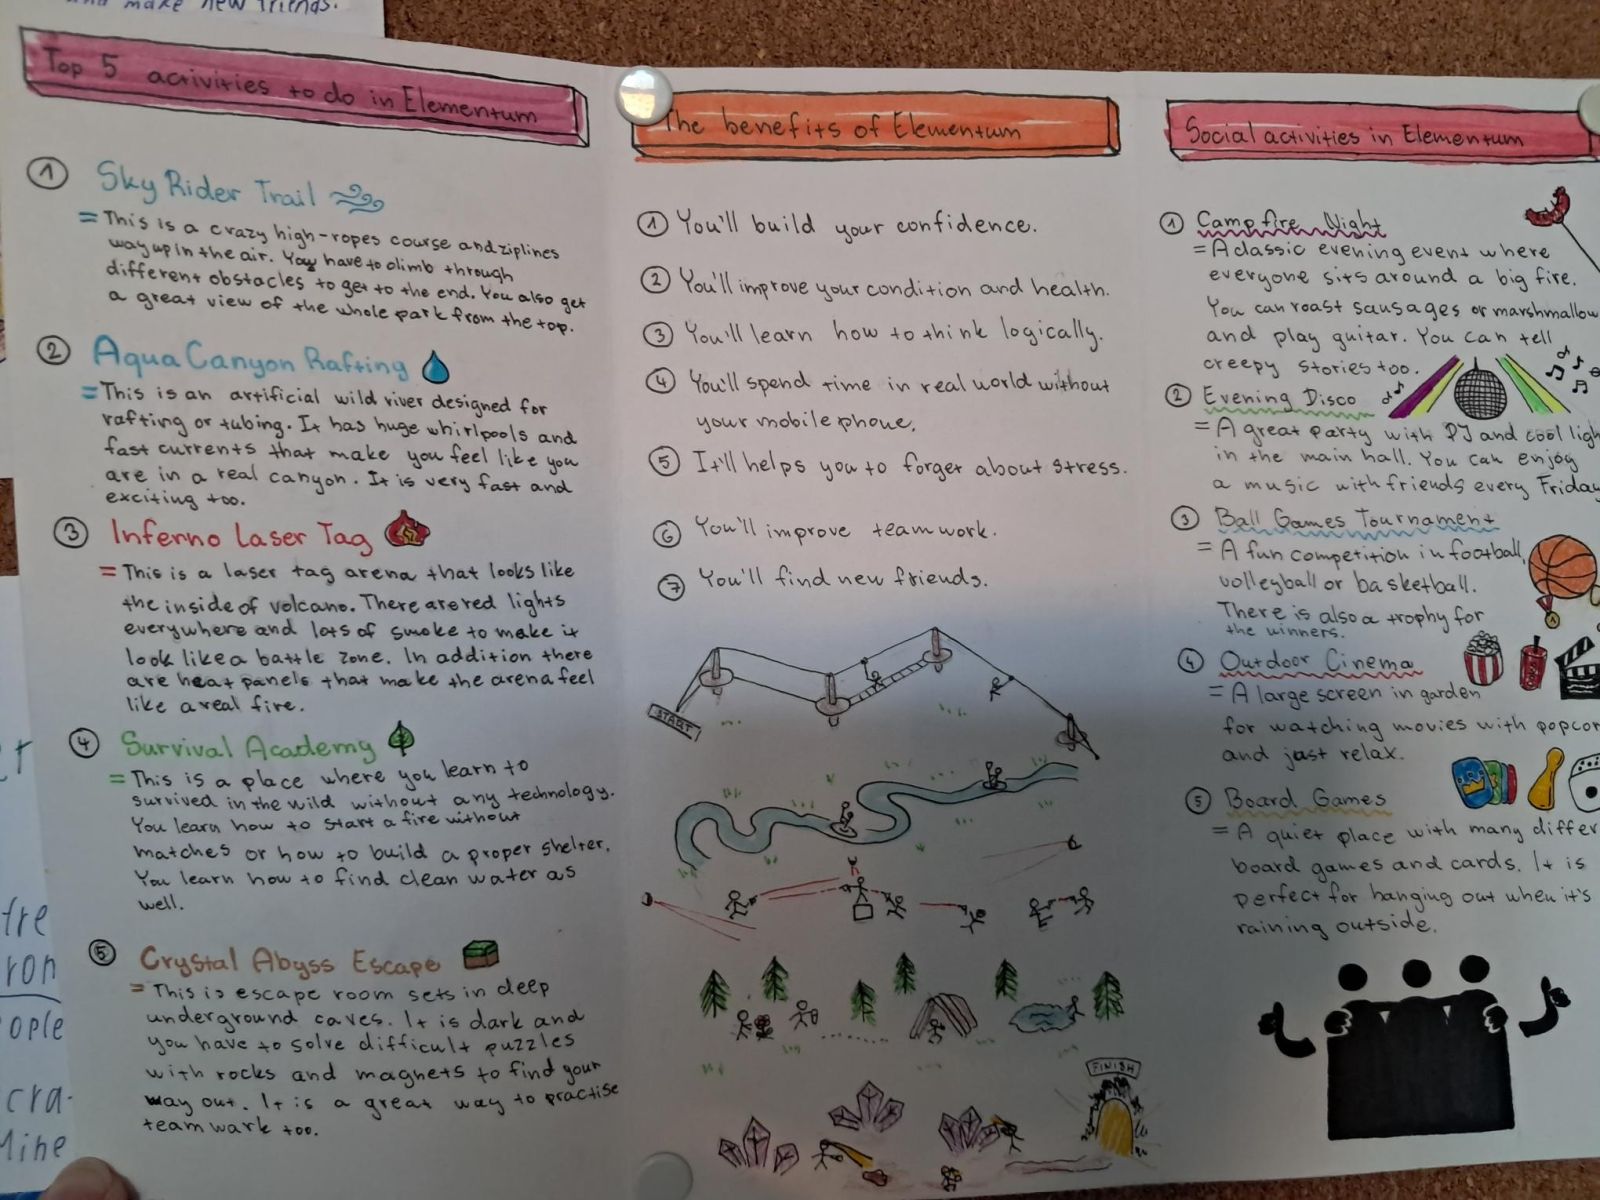 and make new friends.
Top 5 activities to do in Elementum
1 Sky Rider Trail
= This is a crazy high-ropes course and ziplines
way up in the air. You have to climb through
different obstacles to get to the end. You also get
a great view of the whole park from the top.
2 Aqua Canyon Rafting
= This is an artificial wild river designed for
rafting or tubing. It has huge whirlpools and
fast currents that make you feel like you
are in a real canyon. It is very fast and
exciting too.
3 Inferno Laser Tag
= This is a laser tag arena that looks like
the inside of volcano. There are red lights
everywhere and lots of smoke to make it
look like a battle zone. In addition there
are heat panels that make the arena feel
like a real fire.
4 Survival Academy
= This is a place where you learn to
survived in the wild without any technology.
You learn how to start a fire without
matches or how to build a proper shelter.
You learn how to find clean water as
well.
5 Crystal Abyss Escape
= This is escape room sets in deep
underground caves. It is dark and
you have to solve difficult puzzles
with rocks and magnets to find your
way out. It is a great way to practise
team wark too.
The benefits of Elementum
1 You'll build your confidence.
2 You'll improve your condition and health.
3 You'll learn how to think logically.
4 You'll spend time in real world without
your mobile phone.
5 It'll helps you to forget about stress.
6 You'll improve teamwork.
7 You'll find new friends.
START
FINISH
Social activities in Elementum
1 Campfire Night
= A classic evening event where
everyone sits around a big fire.
You can roast sausages or marshmallow
and play guitar. You can tell
creepy stories too.
2 Evening Disco
= A great party with DJ and cool ligh
in the main hall. You can enjoy
a music with friends every Friday
3 Ball Games Tournament
= A fun competition in football,
volleyball or basketball.
There is also a trophy for
the winners.
4 Outdoor Cinema
= A large screen in garden
for watching movies with popcor
and jast relax.
5 Board Games
= A quiet place with many differ
board games and cards. It is
perfect for hanging out when it's
raining outside.